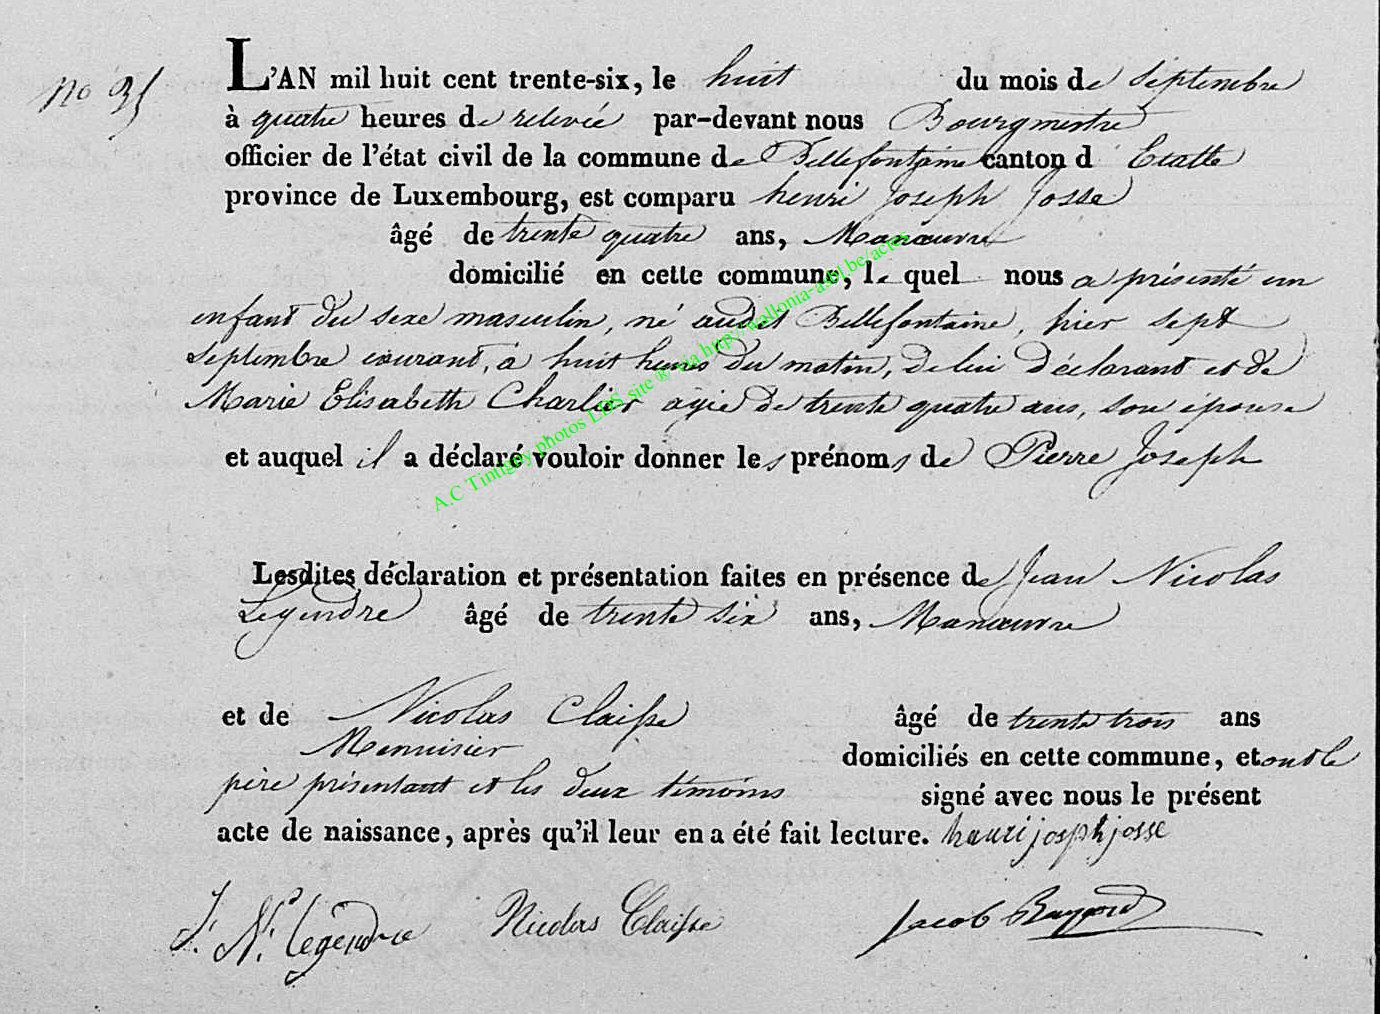 no 35
L'AN mil huit cent trente-six, le huit du mois de Septembre
à quatre heures de relevée par-devant nous Bourgmestre
officier de l'état civil de la commune de Bellefontaine canton d Etalle
province de Luxembourg, est comparu henri Joseph Josse
âgé de trente quatre ans, Manœuvre
domicilié en cette commune, le quel nous a présenté un
enfant du sexe masculin, né audit Bellefontaine, hier sept
Septembre courant, à huit heures du matin, de lui déclarant et de
Marie Elisabeth Charlier agée de trente quatre ans, son épouse
et auquel il a déclaré vouloir donner les prénoms de Pierre Joseph
A.C Tintigny photos LDS site ® via http://wallonia-asbl.be/actes
Lesdites déclaration et présentation faites en présence de Jean Nicolas
Legendre âgé de trente six ans, Manœuvre
et de Nicolas Claisse âgé de trente trois ans
Menuisier domiciliés en cette commune, et ont le
père présentant et les deux témoins signé avec nous le présent
acte de naissance, après qu'il leur en a été fait lecture. henri josphjosse
J. N. legendre Nicolas Claisse Jacob